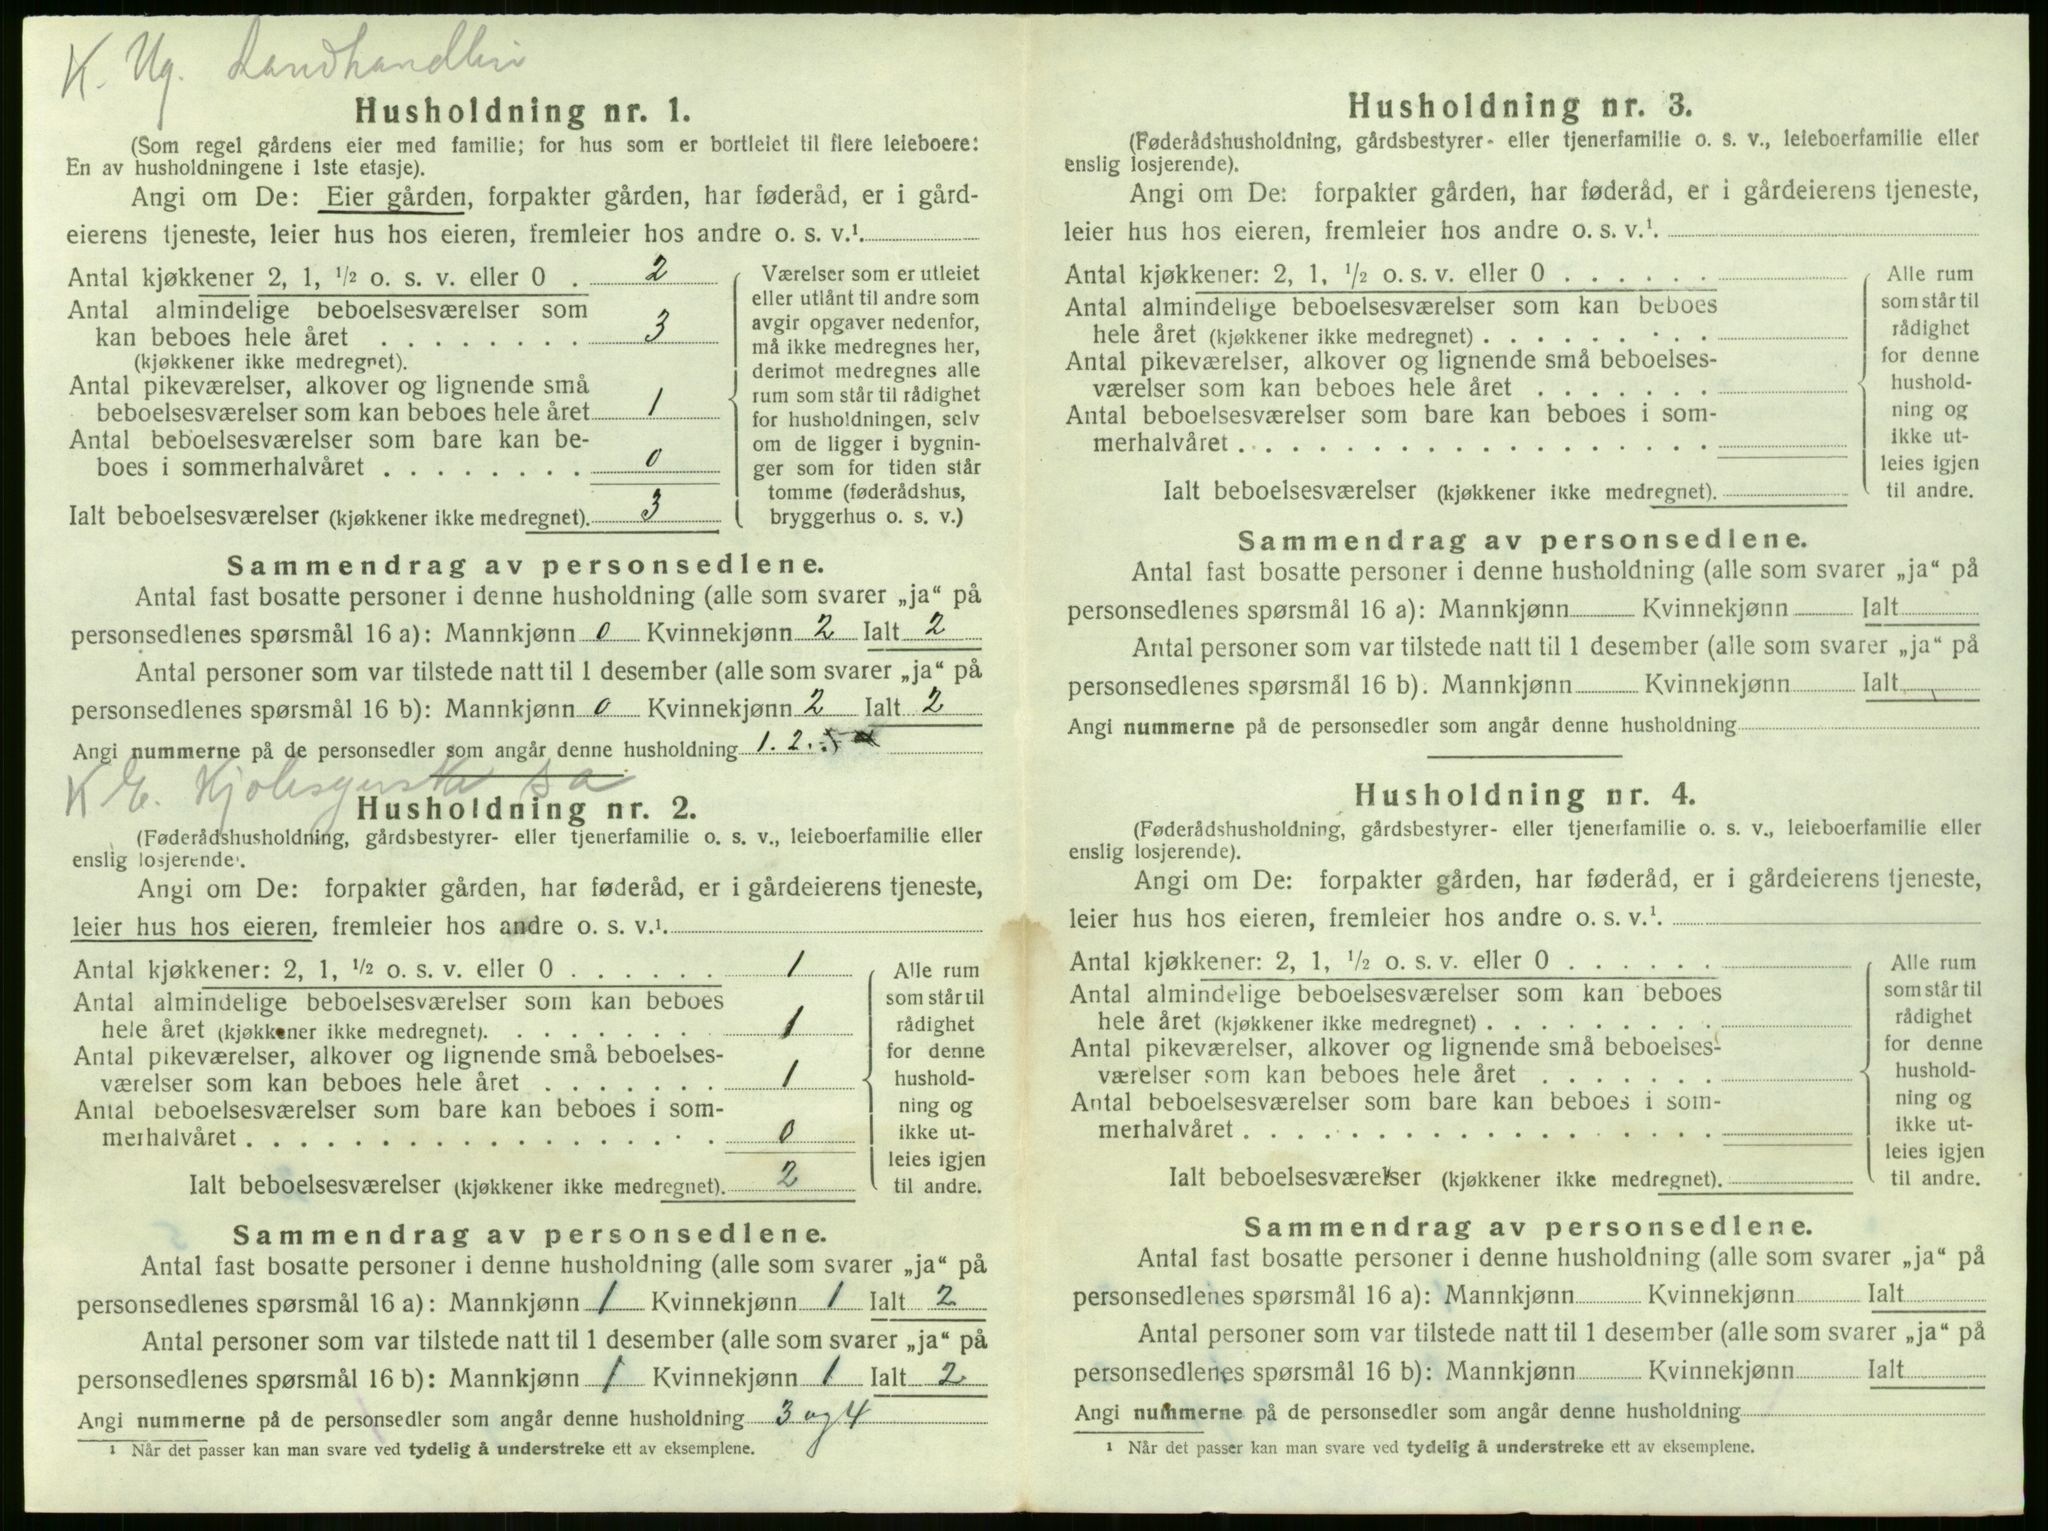 K. Ug. Landhandleri
Husholdning nr. 1.
(Som regel gårdens eier med familie; for hus som er bortleiet til flere leieboere:
En av husholdningene i 1ste etasje).
Angi om De: Eier gården, forpakter gården, har føderåd, er i gård-
eierens tjeneste, leier hus hos eieren, fremleier hos andre o. s. v.¹.
Antal kjøkkener 2, 1, ½ o. s. v. eller 0 . 2
Antal almindelige beboelsesværelser som
kan beboes hele året . . . . . . . . 3
(kjøkkener ikke medregnet).
Antal pikeværelser, alkover og lignende små
beboelsesværelser som kan beboes hele året 1
Antal beboelsesværelser som bare kan be-
boes i sommerhalvåret . . . . . . . . 0
Ialt beboelsesværelser (kjøkkener ikke medregnet). 3
Værelser som er utleiet
eller utlånt til andre som
avgir opgaver nedenfor,
må ikke medregnes her,
derimot medregnes alle
rum som står til rådighet
for husholdningen, selv
om de ligger i bygnin-
ger som for tiden står
tomme (føderådshus,
bryggerhus o. s. v.)
Sammendrag av personsedlene.
Antal fast bosatte personer i denne husholdning (alle som svarer „ja“ på
personsedlenes spørsmål 16 a): Mannkjønn 0 Kvinnekjønn 2 Ialt 2
Antal personer som var tilstede natt til 1 desember (alle som svarer „ja“ på
personsedlenes spørsmål 16 b): Mannkjønn 0 Kvinnekjønn 2 Ialt 2
Angi nummerne på de personsedler som angår denne husholdning 1. 2.
K E. Kjolesyerske
Husholdning nr. 2.
(Føderådshusholdning, gårdsbestyrer- eller tjenerfamilie o. s. v., leieboerfamilie eller
enslig losjerende).
Angi om De: forpakter gården, har føderåd, er i gårdeierens tjeneste,
leier hus hos eieren, fremleier hos andre o. s. v.¹.
Antal kjøkkener: 2, 1, ½ o. s. v. eller 0 . . . . . . 1
Antal almindelige beboelsesværelser som kan beboes
hele året (kjøkkener ikke medregnet). . . . . . . . 1
Antal pikeværelser, alkover og lignende små beboelses-
værelser som kan beboes hele året . . . . . . . 1
Antal beboelsesværelser som bare kan beboes i som-
merhalvåret . . . . . . . . . . . . . . . . . 0
Ialt beboelsesværelser (kjøkkener ikke medregnet). 2
Alle rum
som står til
rådighet
for denne
hushold-
ning og
ikke ut-
leies igjen
til andre.
Sammendrag av personsedlene.
Antal fast bosatte personer i denne husholdning (alle som svarer „ja“ på
personsedlenes spørsmål 16 a): Mannkjønn 1 Kvinnekjønn 1 Ialt 2
Antal personer som var tilstede natt til 1 desember (alle som svarer „ja“ på
personsedlenes spørsmål 16 b): Mannkjønn 1 Kvinnekjønn 1 Ialt 2
Angi nummerne på de personsedler som angår denne husholdning 3 og 4
¹ Når det passer kan man svare ved tydelig å understreke ett av eksemplene.
Husholdning nr. 3.
(Føderådshusholdning, gårdsbestyrer- eller tjenerfamilie o. s. v., leieboerfamilie eller
enslig losjerende).
Angi om De: forpakter gården, har føderåd, er i gårdeierens tjeneste,
leier hus hos eieren, fremleier hos andre o. s. v.¹.
Antal kjøkkener: 2, 1, ½ o. s. v. eller 0 . . . . . .
Antal almindelige beboelsesværelser som kan beboes
hele året (kjøkkener ikke medregnet) . . . . . . . . .
Antal pikeværelser, alkover og lignende små beboelses-
værelser som kan beboes hele året . . . . . . .
Antal beboelsesværelser som bare kan beboes i som-
merhalvåret . . . . . . . . . . . . . . . . .
Ialt beboelsesværelser (kjøkkener ikke medregnet).
Alle rum
som står til
rådighet
for denne
hushold-
ning og
ikke ut-
leies igjen
til andre.
Sammendrag av personsedlene.
Antal fast bosatte personer i denne husholdning (alle som svarer „ja“ på
personsedlenes spørsmål 16 a): Mannkjønn Kvinnekjønn Ialt
Antal personer som var tilstede natt til 1 desember (alle som svarer „ja“ på
personsedlenes spørsmål 16 b). Mannkjønn Kvinnekjønn Ialt
Angi nummerne på de personsedler som angår denne husholdning
Husholdning nr. 4.
(Føderådshusholdning, gårdsbestyrer- eller tjenerfamilie o. s. v., leieboerfamilie eller
enslig losjerende).
Angi om De: forpakter gården, har føderåd, er i gårdeierens tjeneste,
leier hus hos eieren, fremleier hos andre o. s. v.¹.
Antal kjøkkener: 2, 1, ½ o. s. v. eller 0 . . . . . .
Antal almindelige beboelsesværelser som kan beboes
hele året (kjøkkener ikke medregnet) . . . . . . . . .
Antal pikeværelser, alkover og lignende små beboelses-
værelser som kan beboes hele året . . . . . . .
Antal beboelsesværelser som bare kan beboes i som-
merhalvåret . . . . . . . . . . . . . . . . .
Ialt beboelsesværelser (kjøkkener ikke medregnet).
Alle rum
som står til
rådighet
for denne
hushold-
ning og
ikke ut-
leies igjen
til andre.
Sammendrag av personsedlene.
Antal fast bosatte personer i denne husholdning (alle som svarer „ja“ på
personsedlenes spørsmål 16 a): Mannkjønn Kvinnekjønn Ialt
Antal personer som var tilstede natt til 1 desember (alle som svarer „ja“ på
personsedlenes spørsmål 16 b): Mannkjønn Kvinnekjønn Ialt
Angi nummerne på de personsedler som angår denne husholdning
¹ Når det passer kan man svare ved tydelig å understreke ett av eksemplene.